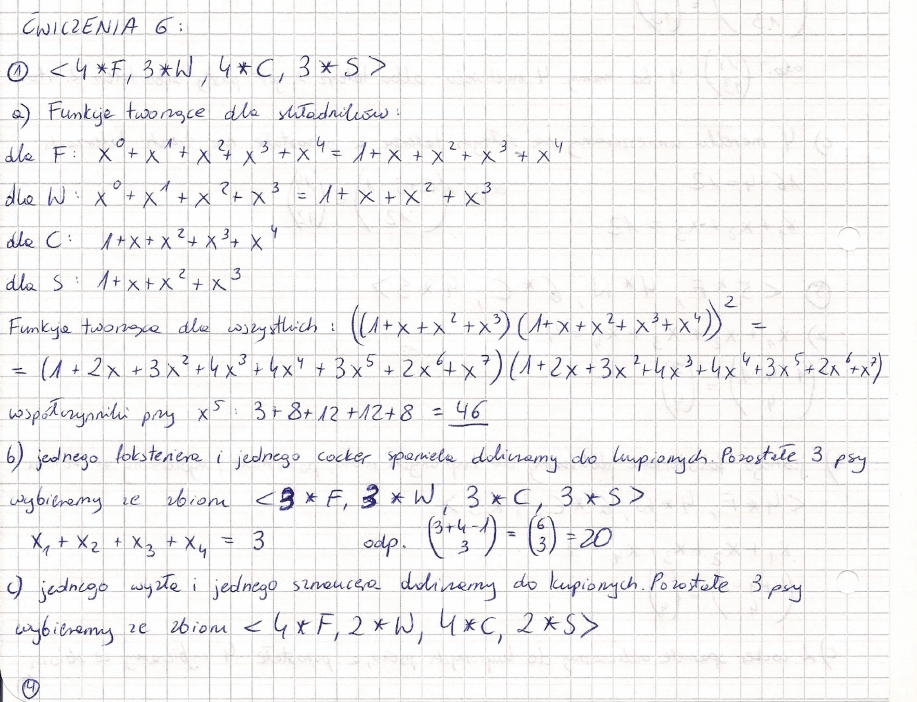 ĆWICZENIA 6:
① <4*F, 3*W, 4*C, 3*S>
a) Funkcje tworzące dla składników:
dla F: x⁰ + x¹ + x² + x³ + x⁴ = 1 + x + x² + x³ + x⁴
dla W: x⁰ + x¹ + x² + x³ = 1 + x + x² + x³
dla C: 1 + x + x² + x³ + x⁴
dla S: 1 + x + x² + x³
Funkcja tworząca dla wszystkich: ((1 + x + x² + x³)(1 + x + x² + x³ + x⁴))² =
= (1 + 2x + 3x² + 4x³ + 4x⁴ + 3x⁵ + 2x⁶ + x⁷)(1 + 2x + 3x² + 4x³ + 4x⁴ + 3x⁵ + 2x⁶ + x⁷)
współczynniki przy x⁵: 3 + 8 + 12 + 12 + 8 = 46
b) jednego foksteriera i jednego cocker spaniela doliczamy do kupionych. Pozostałe 3 psy
wybieramy ze zbioru <3*F, 3*W, 3*C, 3*S>
x₁ + x₂ + x₃ + x₄ = 3 odp. (3+4-1 3) = (6 3) = 20
c) jednego wyżła i jednego sznaucera doliczamy do kupionych. Pozostałe 3 psy
wybieramy ze zbioru <4*F, 2*W, 4*C, 2*S>
④